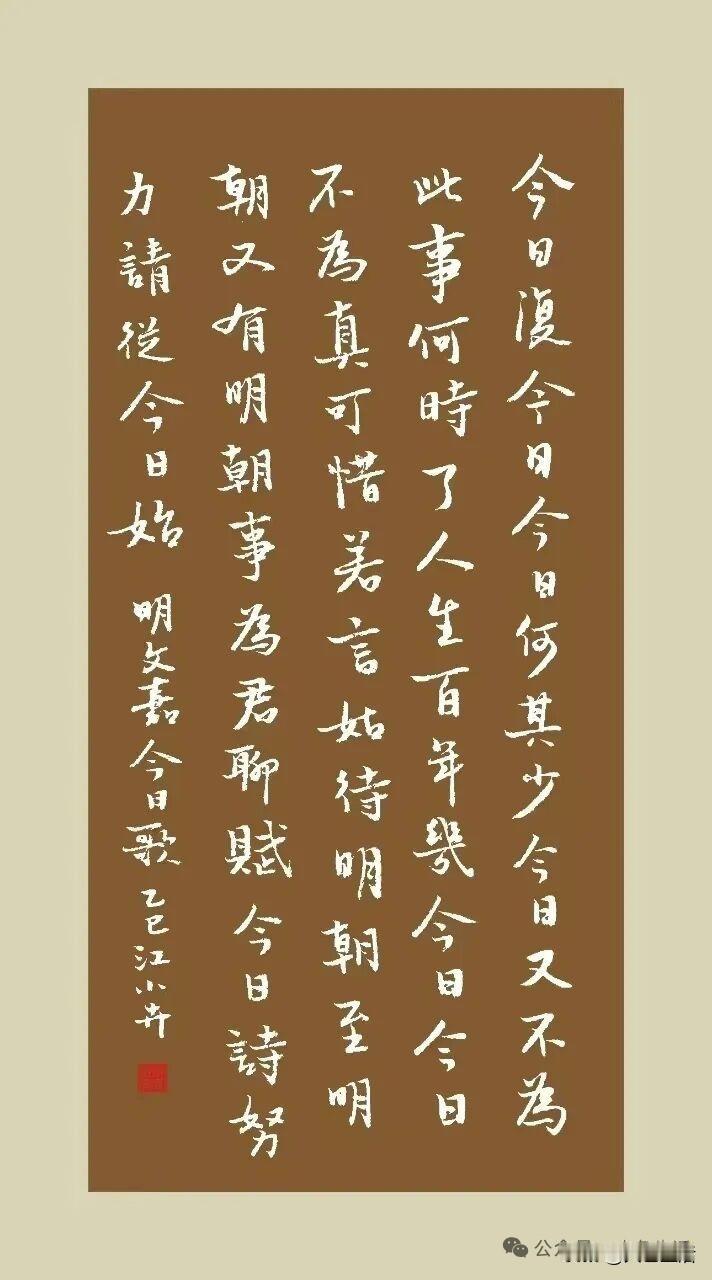 今日復今今日日何其少今日又不為
此事何時了人生百年幾今日今日
不為真可惜若言姑待明朝至明
朝又有明朝事為君聊賦今日詩努
力請從今日始
明文嘉今日歌乙巳江小卉
公众号